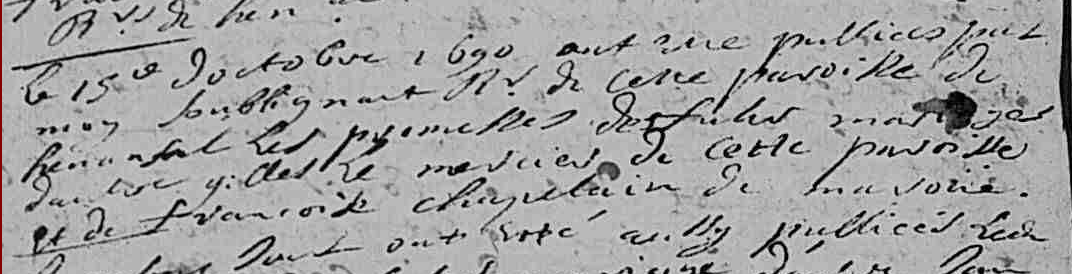 Rr. de hen
le 15e doctobre 1690 ont esté publiées par
moy soubsignant Rr. de cette paroisse de
henansal les promesses des futurs mariages
dentre gilles le mercier de cette paroisse
et de francoise chapelain de maroué.
ont esté aussy publiées